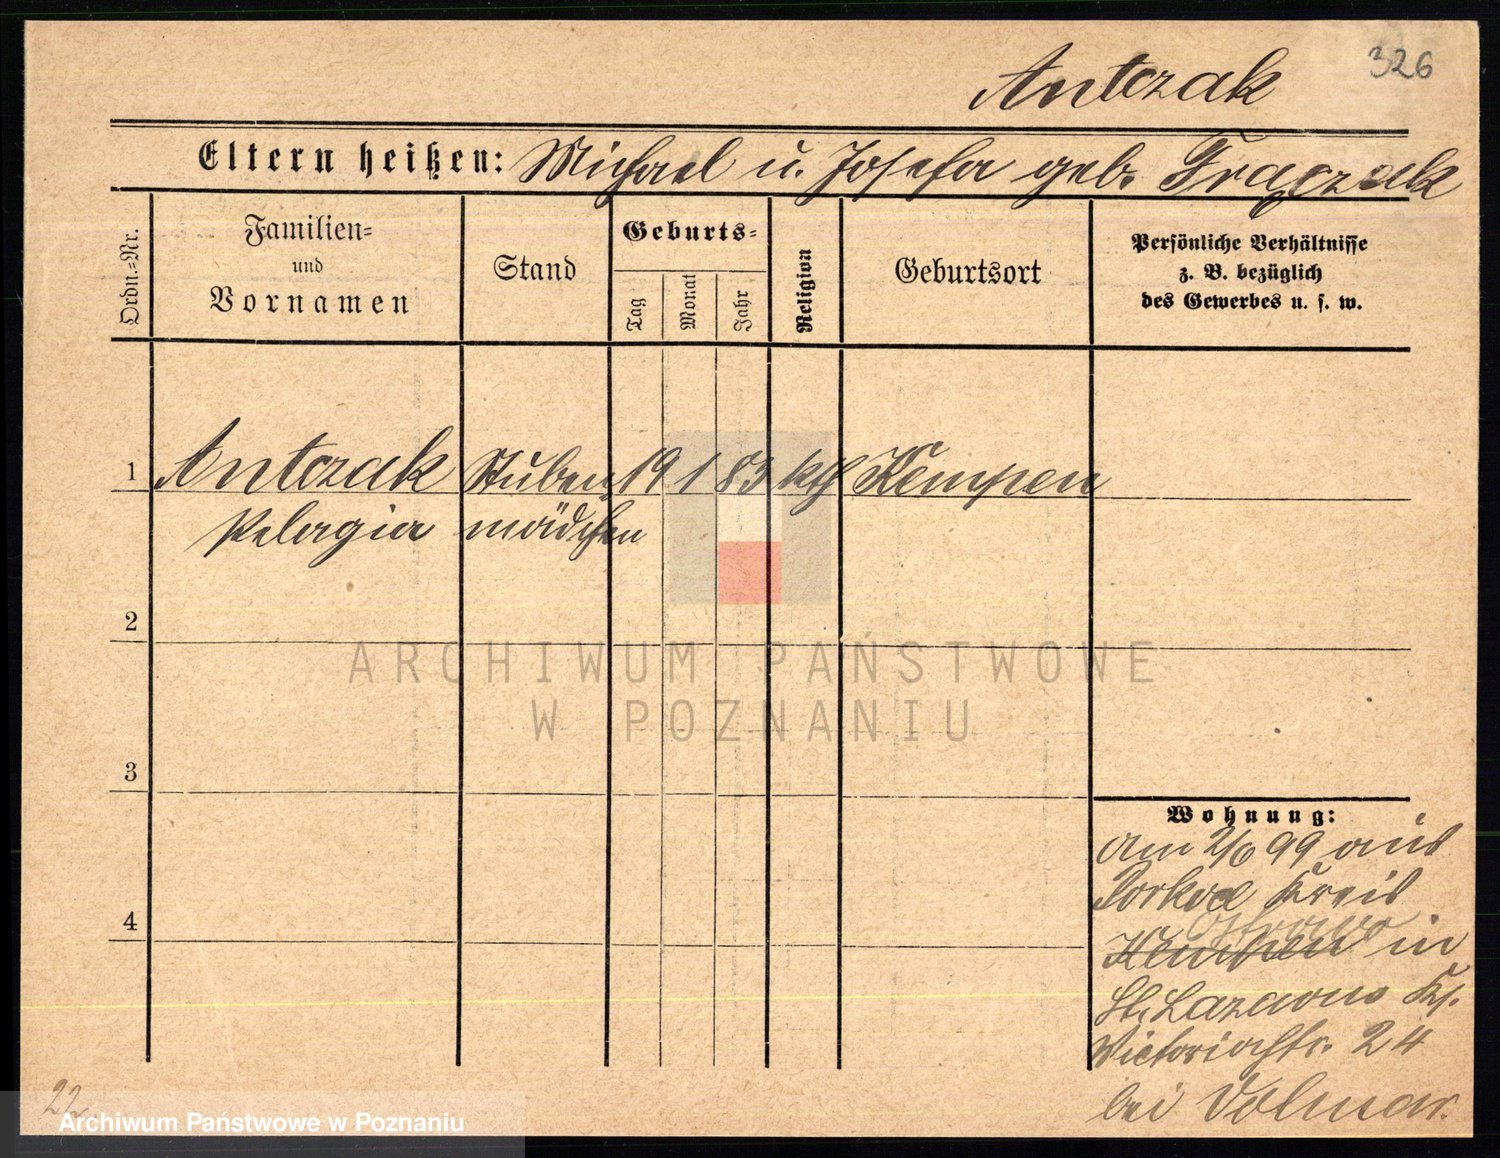 326
Antczak
Eltern heißen: Michael u. Josefa geb. Frączak
Ordn.=Nr.
Familien=
und
Vornamen
Stand
Geburts=
Tag
Monat
Jahr
Religion
Geburtsort
Persönliche Verhältnisse
z. B. bezüglich
des Gewerbes u. s. w.
1 Antczak Stuben 19 1 83 kth Kempen
Pelagia mädchen
2
ARCHIWUM PAŃSTWOWE
W POZNANIU
3
Wohnung:
am 2/6 99 aus
Kreis
4
Ostrowo
Kempen in
St. Lazarus Kr.
Victoriastr. 24
bei Volmar.
22
Archiwum Państwowe w Poznaniu